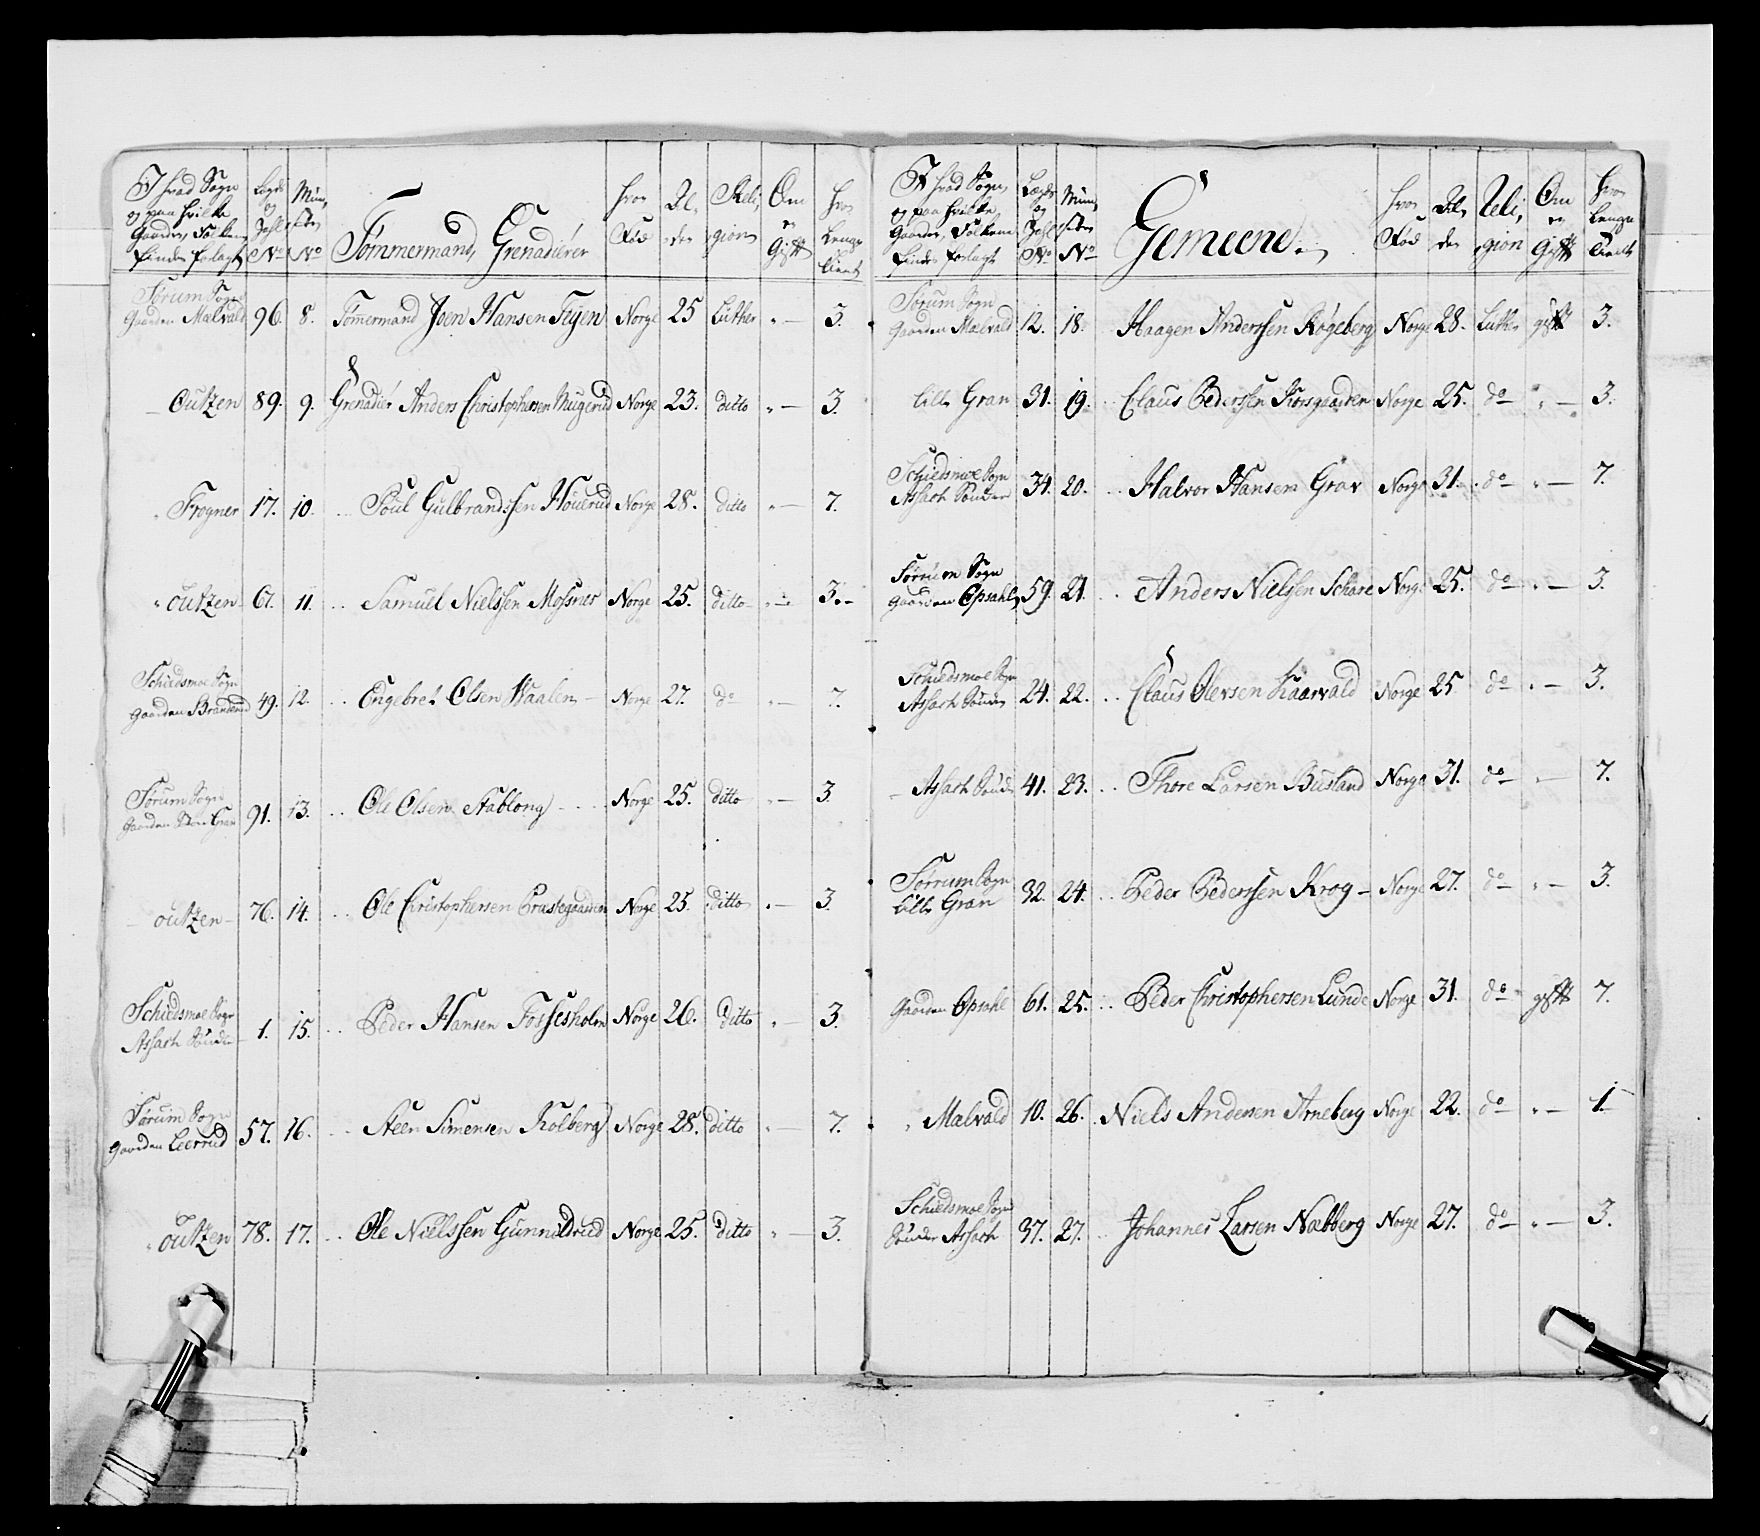 I hvad Sogn
og paa hvilke
Gaarder, Folkene
findes forlagt
Lægds
og
N:o
Mün,
ster,
N:o
Tømmermand, Grenadiérer
hvor
Fød
Al,
der
Reli,
gion
Om
er
Gift
hvor
længe
tient
Sørum Sogn
Gaarden Malvald 96. 8. Tømermand Joen Hansen Feyen Norge 25 Luther „ — 3.
— Outzen 89. 9. Grenadiér Anders Christophersen Mugerud Norge 23. ditto „ — 3.
„ Frogner 17. 10. .. Poul Gulbrandssen Houerud Norge 28. ditto „ — 7.
„ outzen 67. 11. .. Samuel Nielssen Mossnes Norge 25. ditto „ — 3.
Schiedsmoe Sogn
Gaarden Branderud 49. 12. .. Engebret Olsen Waalen — Norge 27. do „ — 7.
Sørum Sogn
Gaarden Gran 91. 13. .. Ole Olsen Stablong .... Norge 25. ditto „ — 3.
— outzen — 76. 14. .. Ole Christophersen Præstegaarden Norge 25. ditto „ — 3.
Schiedsmoe Sogn
Assach Sønder 1. 15. .. Peder Hansen Fossesholm Norge 26. ditto „ — 3.
Sørum Sogn
Gaarden Leerrud 57. 16. .. Steen Simensen Kolberg Norge 28. ditto „ — 7.
„ outzen 78. 17. .. Ole Nielssen Gunnildrud Norge 25. ditto „ — 3.
I hvad Sogn,
og paa hvilke
Gaarder, Folkene
findes forlagt
Lægds
og
N:o
Mün,
ster,
N:o
Gemeene.
hvor
Fød
Al,
der
Reli,
gion
Om
er
Gift
hvor
længe
tient
Sørum Sogn
Gaarden Malvald 12. 18. Haagen Anderssen Røgeberg Norge 28. Luther gift 3.
Lille Gran 31. 19. .. Claus Pederssen Korsgaarden Norge 25. do „ — 3.
Schiedsmoe Sogn
Assach Sønder 34. 20. .. Halvor Hansen Grav Norge 31. do „ — 7.
Sørum Sogn
Gaarden Opsahl 59. 21. .. Anders Nielsen Schare Norge 25. do „ — 3.
Schiedsmoe Sogn
Assach Sønder 24. 22. .. Claus Olevsen Kaarvald Norge 25 do „ — 3.
— Assach Sønder 41. 23. .. Thore Larsen Busland Norge 31. do — 7.
Sørrum Sogn
Lille Gran 32. 24. .. Peder Pederssen Krog — Norge 27. do „ — 3.
Gaarden Opsahl 61. 25. .. Peder Christophersen Lunde Norge 31. do gift 7.
„ Malvald 10. 26. .. Niels Andersen Arneberg Norge 22. do „ — 1.
Schiedsmoe Sogn
Sønder Assach 37. 27. .. Johannes Larsen Nabberg Norge 27. do „ — 3.